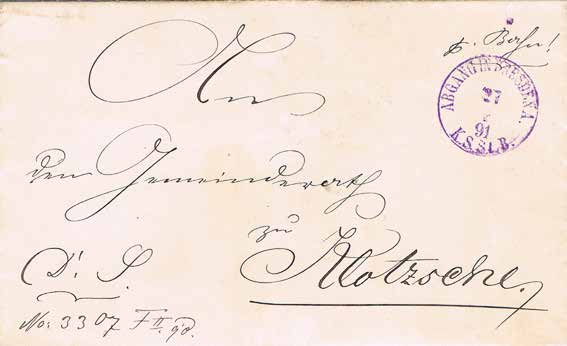 p. Bahn!
ABGANG IN DRESDEN A.
27
91
K.S.St.B.
An
den Gemeinderath
zu
Klotzsche.
D. S.
No: 3307 F II.